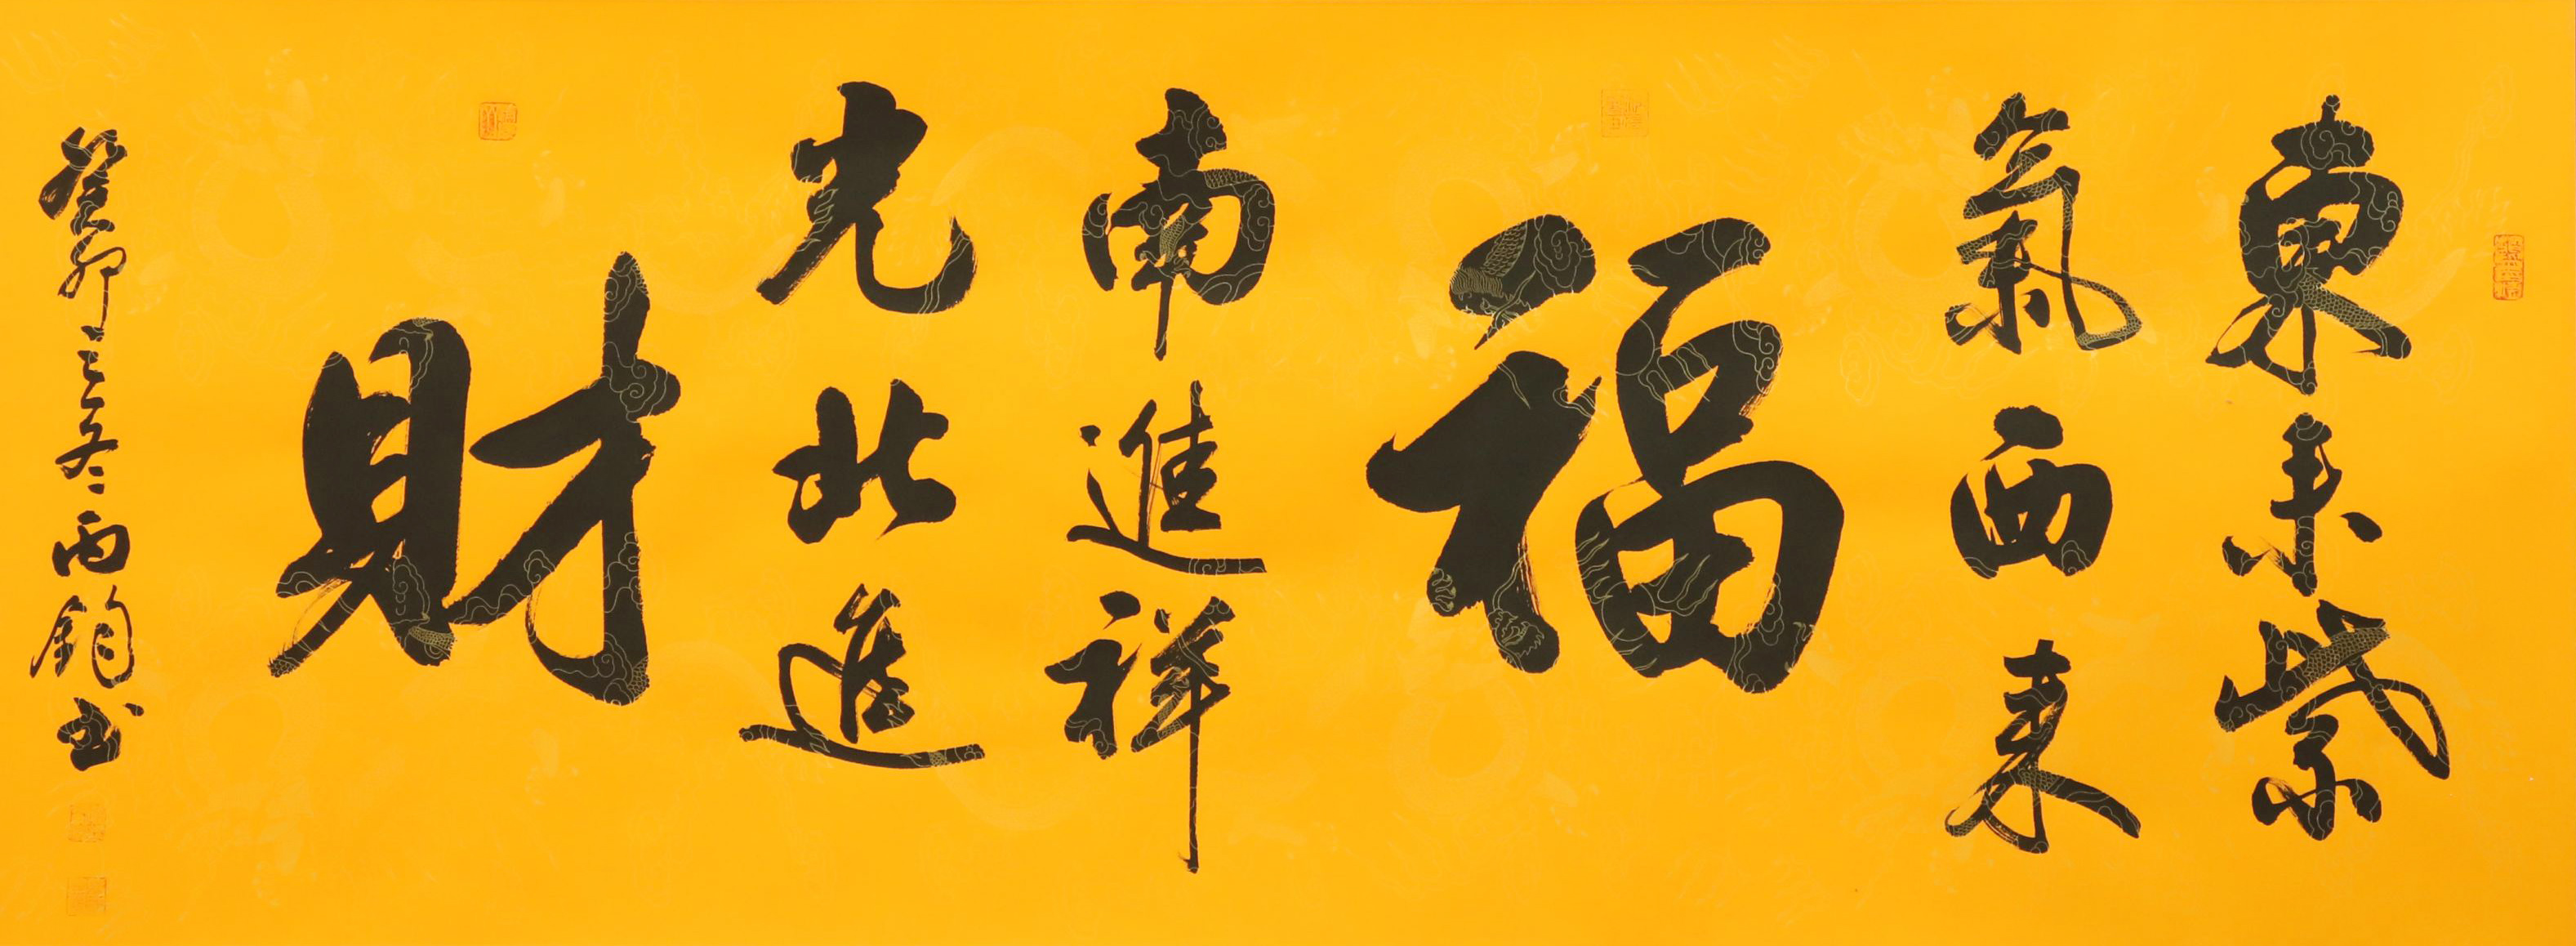 東来紫
氣西来
福
南進祥
光北進
財
癸卯之冬丙鈞书